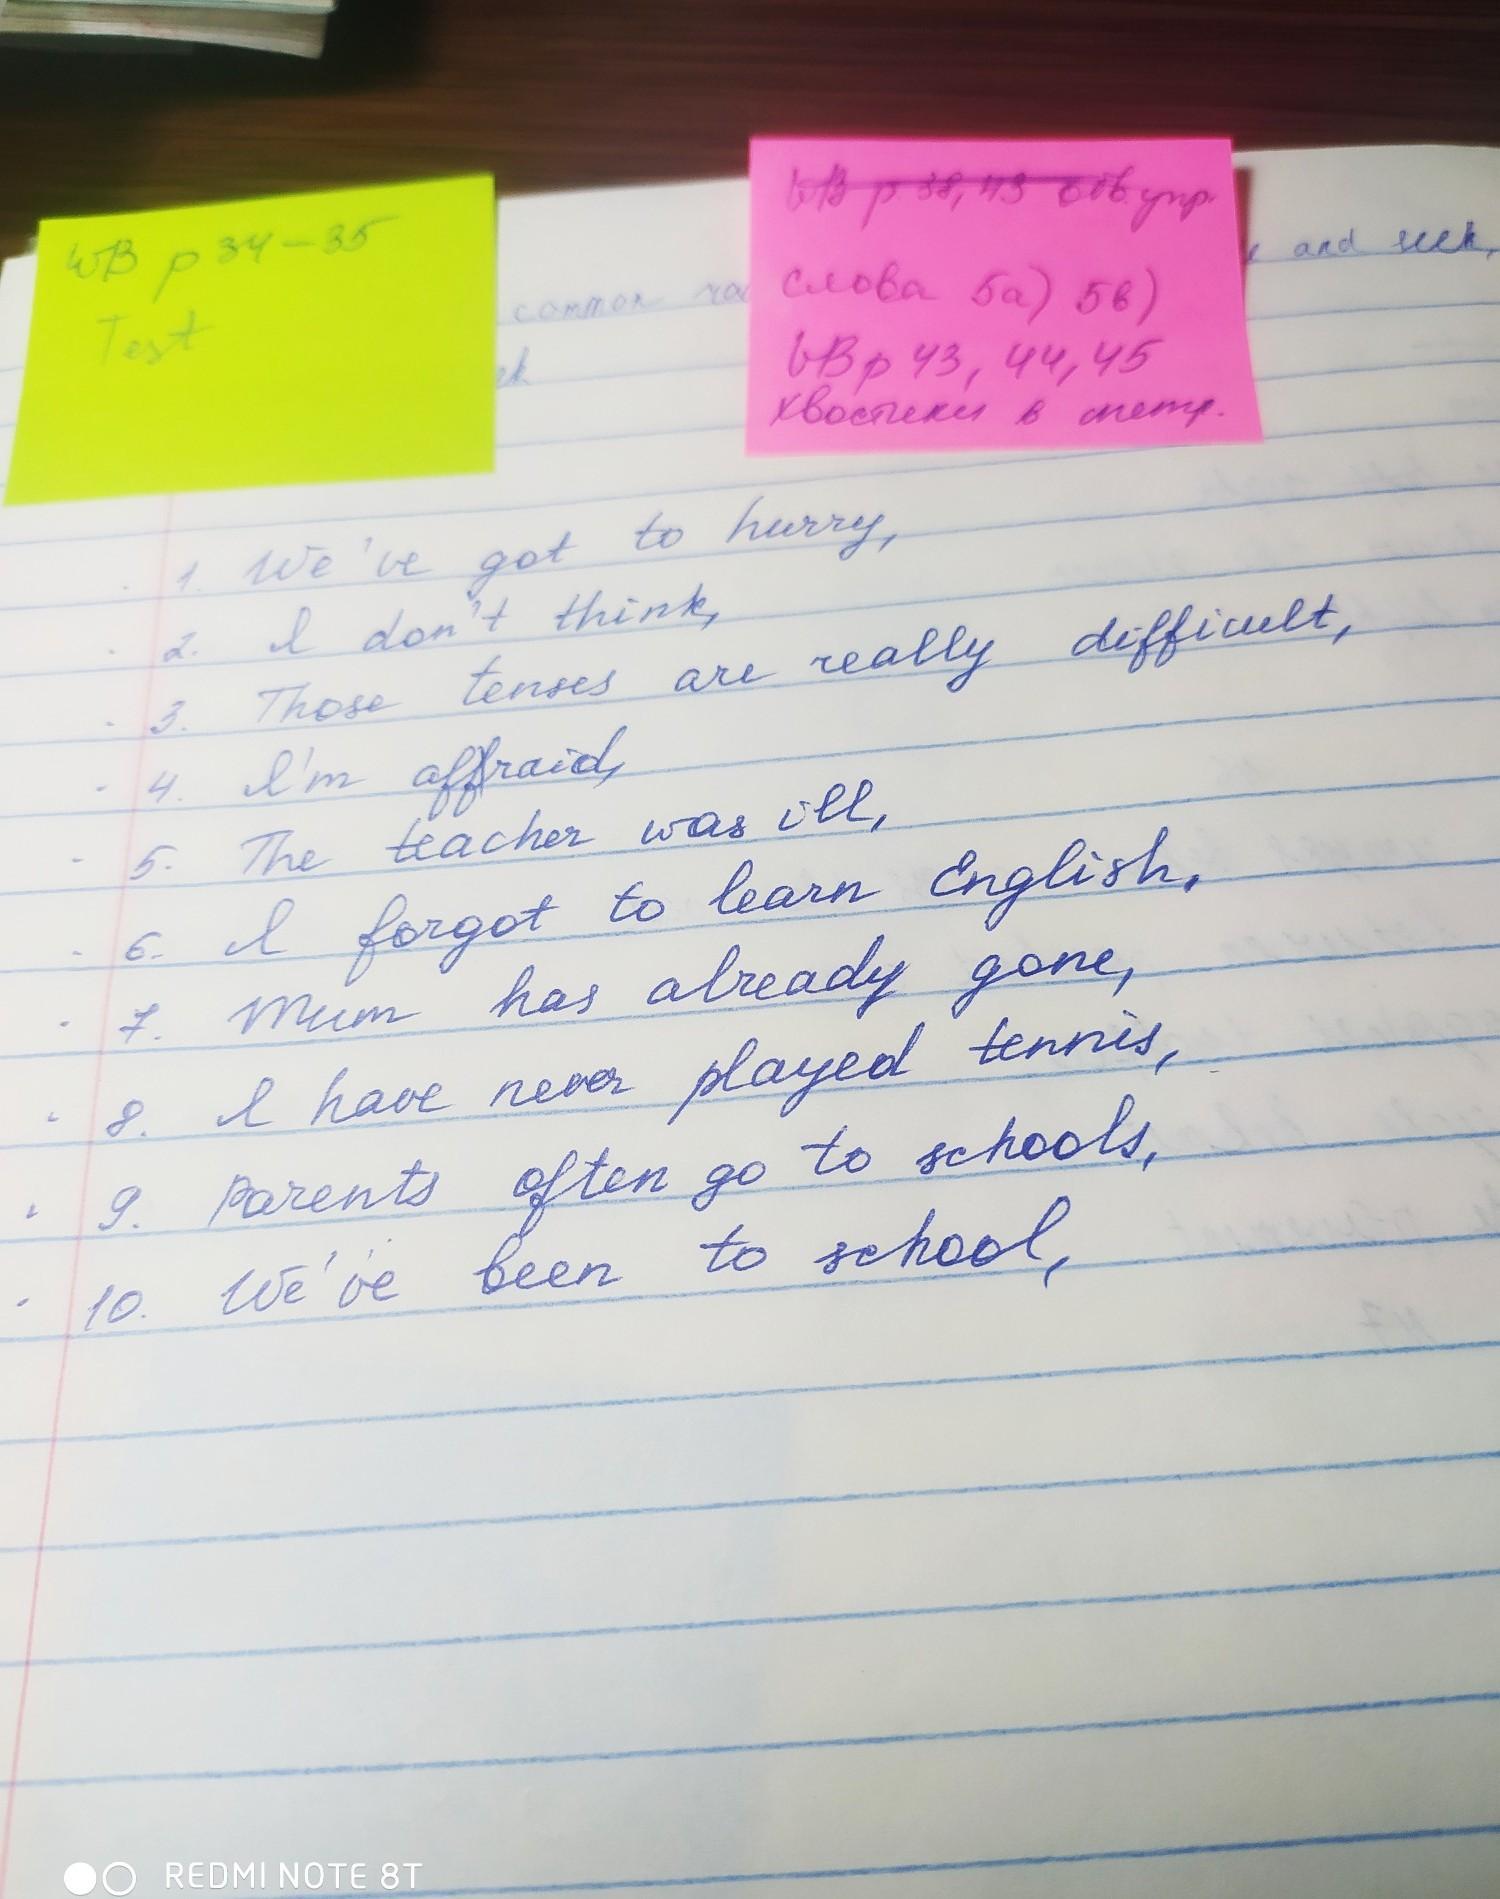 WB p 34-35
Test
WB p 38, 43 оба упр.
слова 5a) 5b)
WB p 43, 44, 45
хвостики в тетр.
and seek,
common
1. We've got to hurry,
2. I don't think,
3. Those tenses are really difficult,
4. I'm affraid,
5. The teacher was ill,
6. I forgot to learn English,
7. Mum has already gone,
8. I have never played tennis,
9. Parents often go to schools,
10. We've been to school,
REDMI NOTE 8T